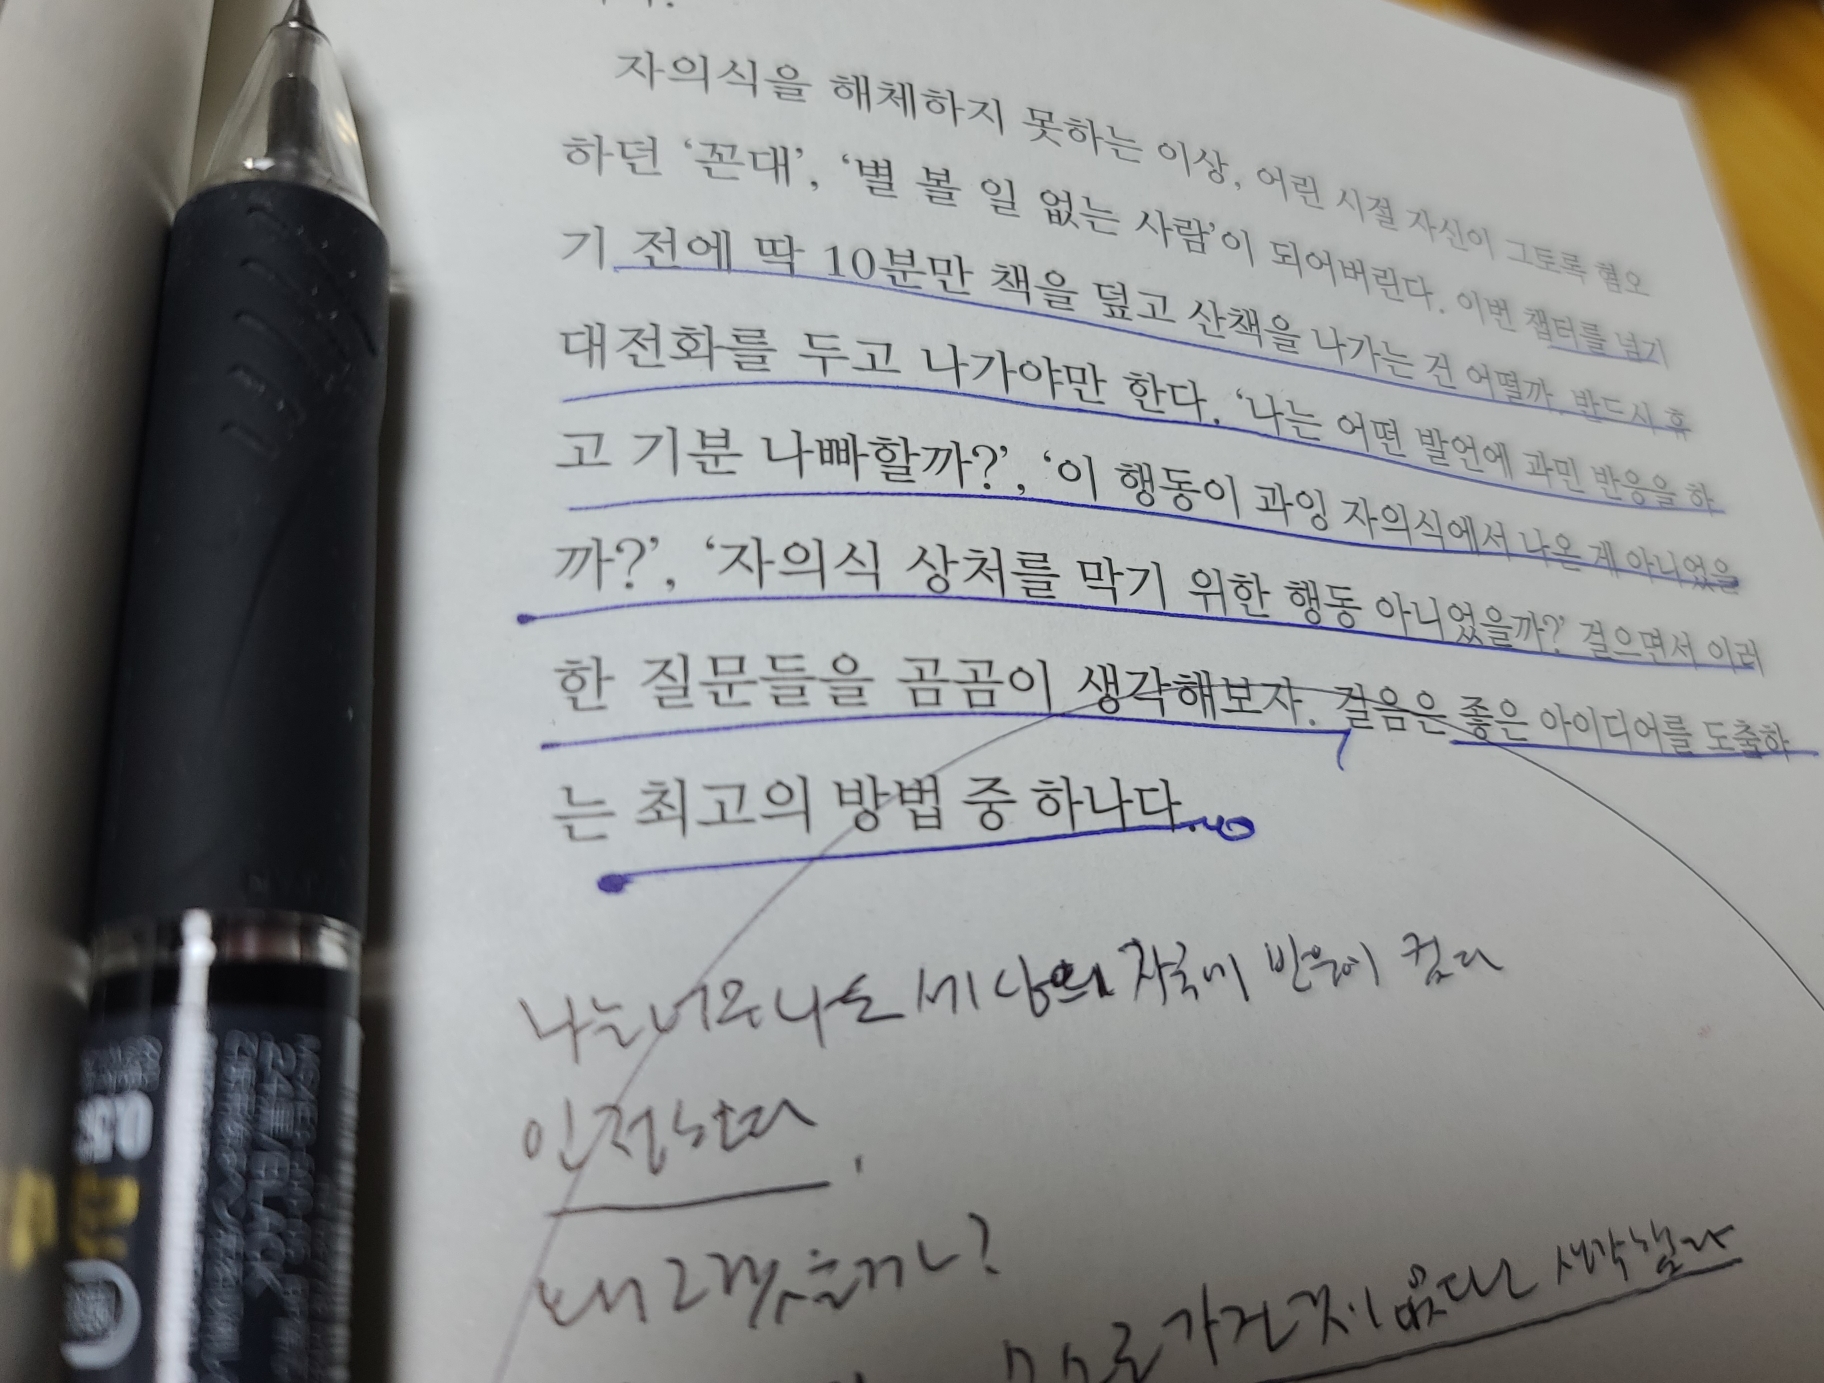 자의식을 해체하지 못하는 이상, 어린 시절 자신이 그토록 혐오
하던 ‘꼰대’, ‘별 볼 일 없는 사람’이 되어버린다. 이번 챕터를 넘기
기 전에 딱 10분만 책을 덮고 산책을 나가는 건 어떨까. 반드시 휴
대전화를 두고 나가야만 한다. ‘나는 어떤 발언에 과민 반응을 하
고 기분 나빠할까?’, ‘이 행동이 과잉 자의식에서 나온 게 아니었을
까?’, ‘자의식 상처를 막기 위한 행동 아니었을까?’ 걸으면서 이러
한 질문들을 곰곰이 생각해보자. 걸음은 좋은 아이디어를 도출하
는 최고의 방법 중 하나다.
나는 너무나도 세상의 자극에 반응이 컸다
인정한다.
왜 그랬을까?
스스로 가진 것이 없다고 생각했다
0.5
BLACK